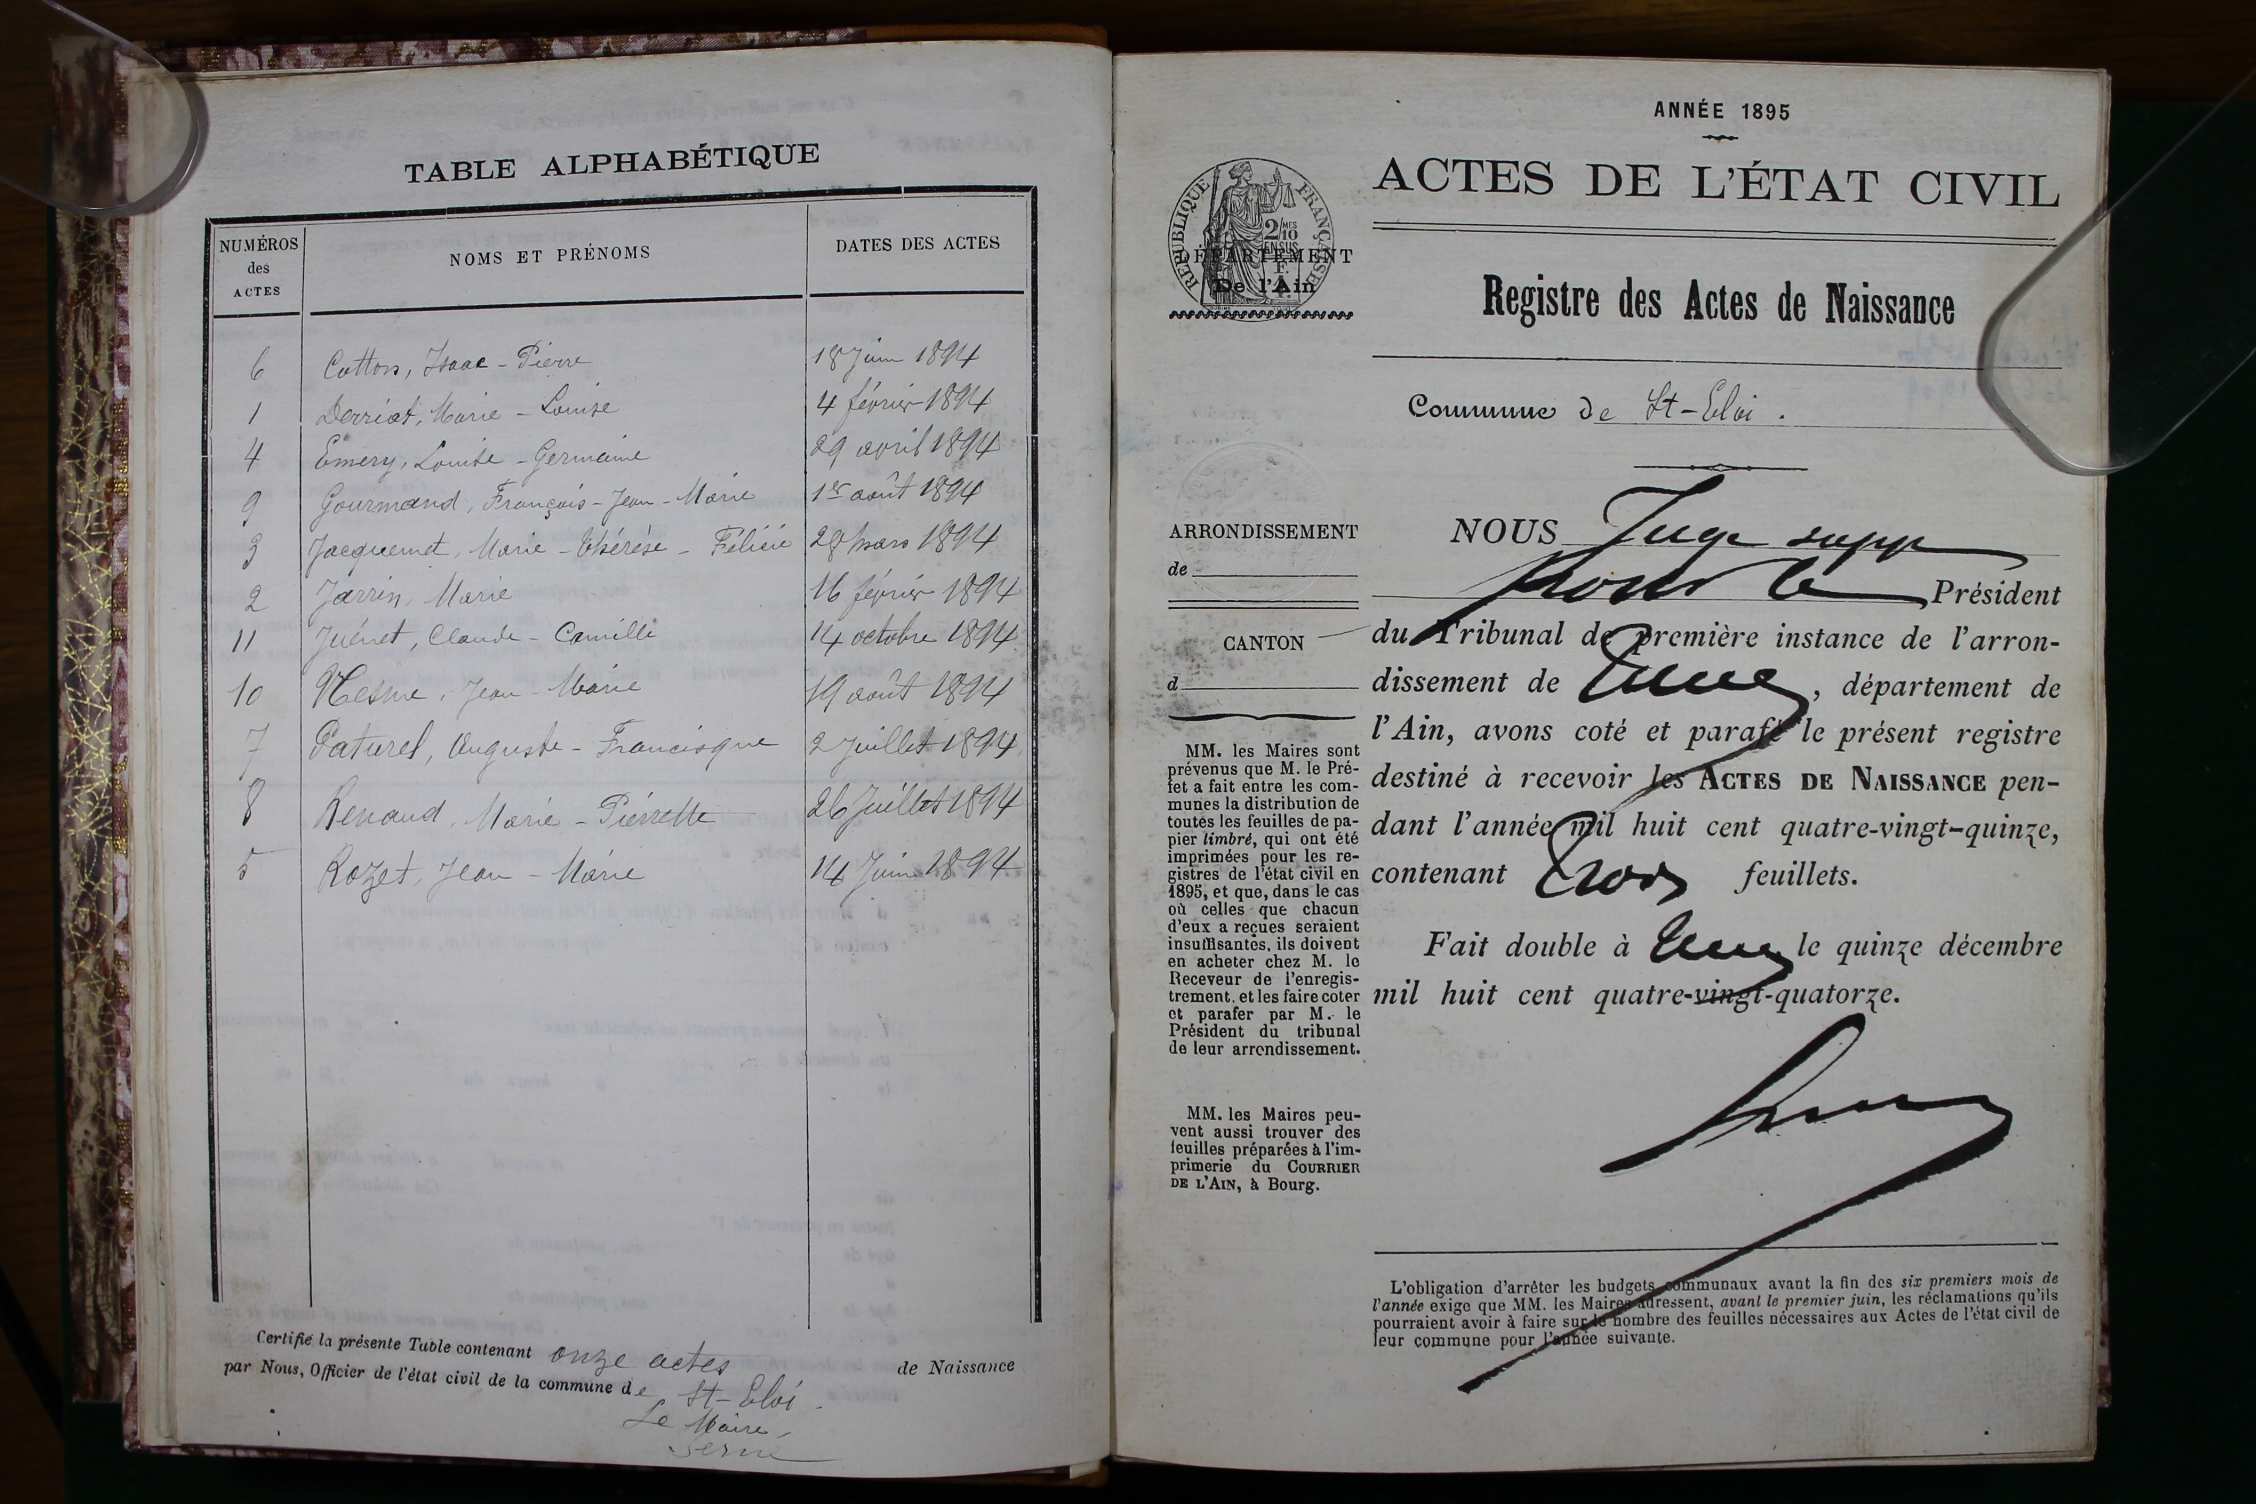 TABLE ALPHABÉTIQUE
NUMÉROS des ACTES
NOMS ET PRÉNOMS
DATES DES ACTES
6 Cotton, Isaac - Pierre 18 Juin 1894
1 Derriat, Marie - Louise 4 février 1894
4 Emery, Louise - Germaine 29 avril 1894
9 Gourmand, François - Jean - Marie 1er août 1894
3 Jacquemet, Marie - Thérèse - Félicie 28 mars 1894
2 Jarrin, Marie 16 février 1894
11 Juénet, Claude - Camille 14 octobre 1894
10 Mesme, Jean - Marie 19 août 1894
7 Paturel, Auguste - Francisque 2 Juillet 1894
8 Renaud, Marie - Pierrette 26 Juillet 1894
5 Rozet, Jean - Marie 14 Juin 1894
Certifié la présente Table contenant onze actes de Naissance
par Nous, Officier de l'état civil de la commune de St-Eloi.
Le Maire,
ANNÉE 1895
ACTES DE L'ÉTAT CIVIL
RÉPUBLIQUE FRANÇAISE
2/10 MES
EN SUS
DÉPARTEMENT
De l'Ain
Registre des Actes de Naissance
Commune de St-Eloi.
ARRONDISSEMENT
de
CANTON
d
MM. les Maires sont
prévenus que M. le Pré-
fet a fait entre les com-
munes la distribution de
toutes les feuilles de pa-
pier timbré, qui ont été
imprimées pour les re-
gistres de l'état civil en
1895, et que, dans le cas
où celles que chacun
d'eux a reçues seraient
insuffisantes, ils doivent
en acheter chez M. le
Receveur de l'enregis-
trement, et les faire coter
et parafer par M. le
Président du tribunal
de leur arrondissement.
MM. les Maires peu-
vent aussi trouver des
feuilles préparées à l'im-
primerie du COURRIER
DE L'AIN, à Bourg.
NOUS Juge supp
pour le Président
du Tribunal de première instance de l'arron-
dissement de , département de
l'Ain, avons coté et parafé le présent registre
destiné à recevoir les ACTES DE NAISSANCE pen-
dant l'année mil huit cent quatre-vingt-quinze,
contenant trois feuillets.
Fait double à le quinze décembre
mil huit cent quatre-vingt-quatorze.
L'obligation d'arrêter les budgets communaux avant la fin des six premiers mois de
l'année exige que MM. les Maires adressent, avant le premier juin, les réclamations qu'ils
pourraient avoir à faire sur le nombre des feuilles nécessaires aux Actes de l'état civil de
leur commune pour l'année suivante.